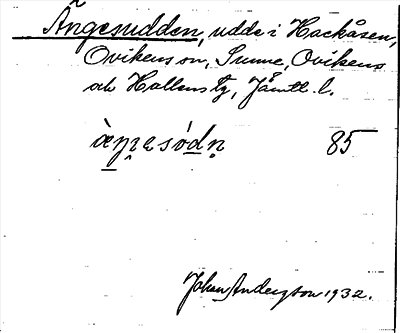 Ängesudden, udde i Hackåsen,
Ovikens sn, Sunne, Ovikens
och Hallens tg, Jämtl. l.
85
Johan Anderzon 1932.